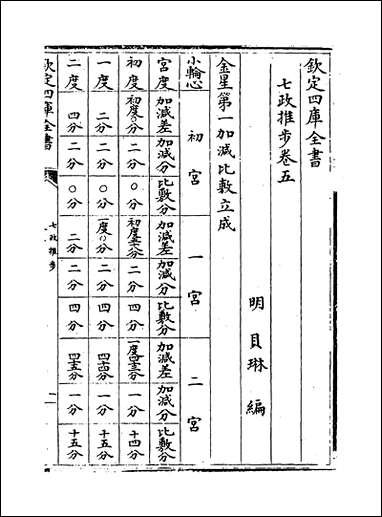 欽定四庫全書
七政推步卷五
明 貝琳 編
金星第一加減比敷立成
小輪心 初宮 一宮 二宮
宮度 加減差 加減分 比敷分 加減差 加減分 比敷分 加減差 加減分 比敷分
初度 初度〇分 二分 〇分 二分 四分 一分 十四分
一度 二分 二分 〇分 一度〇分 二分 四分 四四分 一分 十五分
二度 四分 二分 〇分 二分 二分 四分 四五分 一分 十五分
欽定四庫全書
七政推步